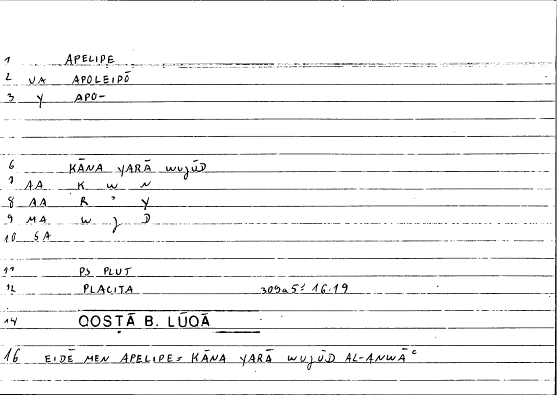 1 APELIPE
2 VA APOLEIPŌ
3 Y APO-
6 KĀNA YARĀ WUJŪD
7 AA K W N
8 AA R ʾ Y
9 MA W J D
10 SA
11 PS PLUT
12 PLACITA 309a5; 16.19
14 QOSṬĀ B. LŪQĀ
16 EIDĒ MEN APELIPE= KĀNA YARĀ WUJŪD AL-ANWĀʿ